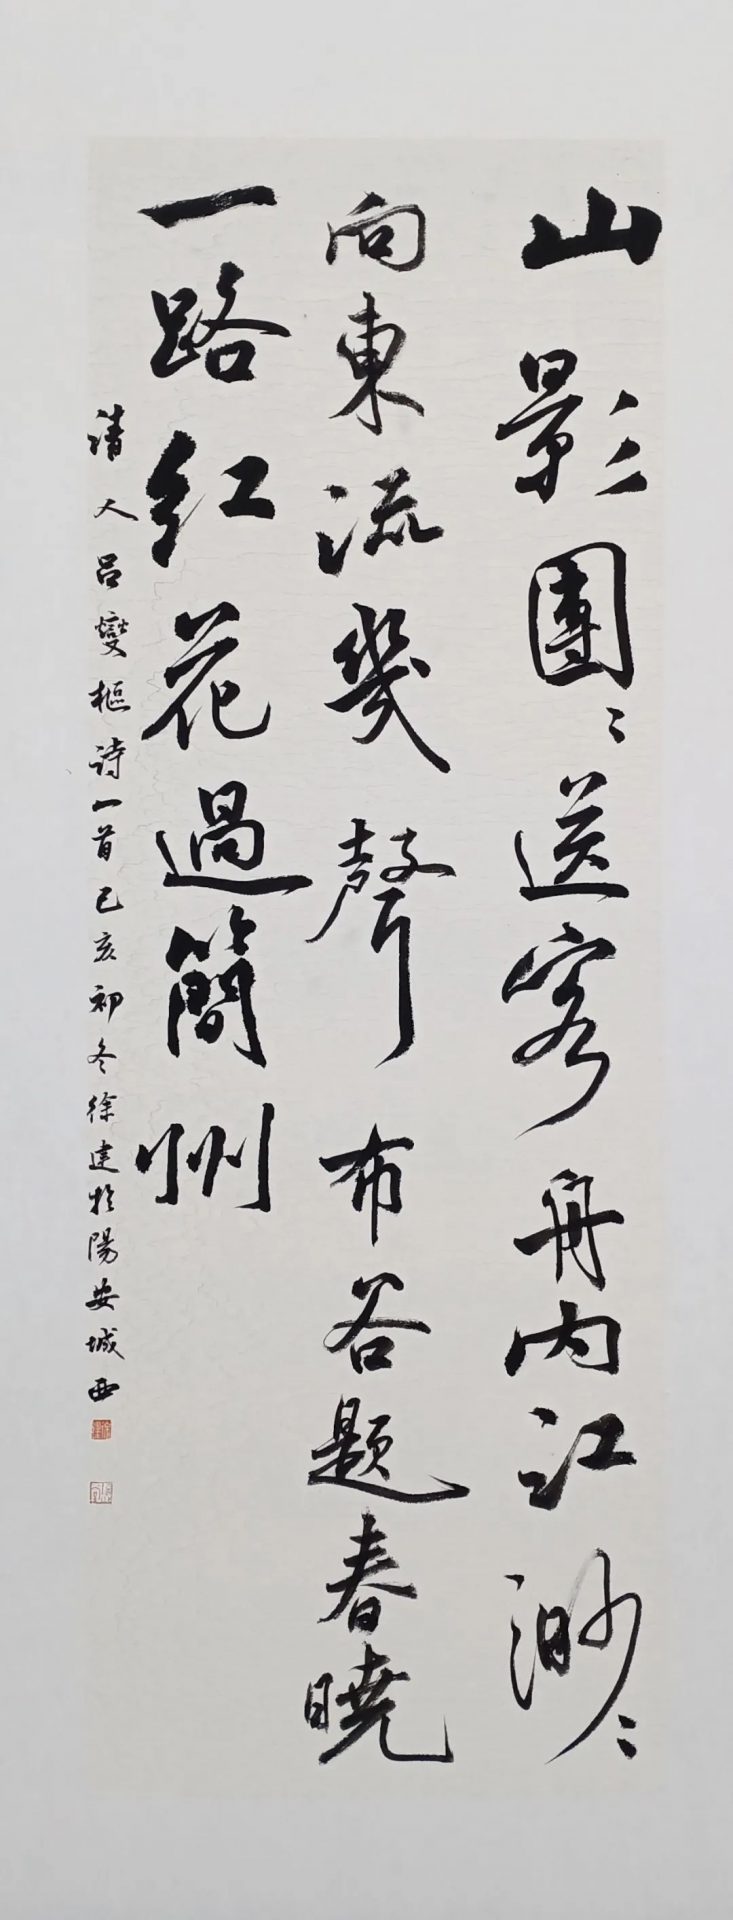 山影團〻送客舟内江渺〻
向東流幾聲布谷題春曉
一路紅花過簡州
清人呂燮樞诗一首己亥初冬徐建於陽安城西